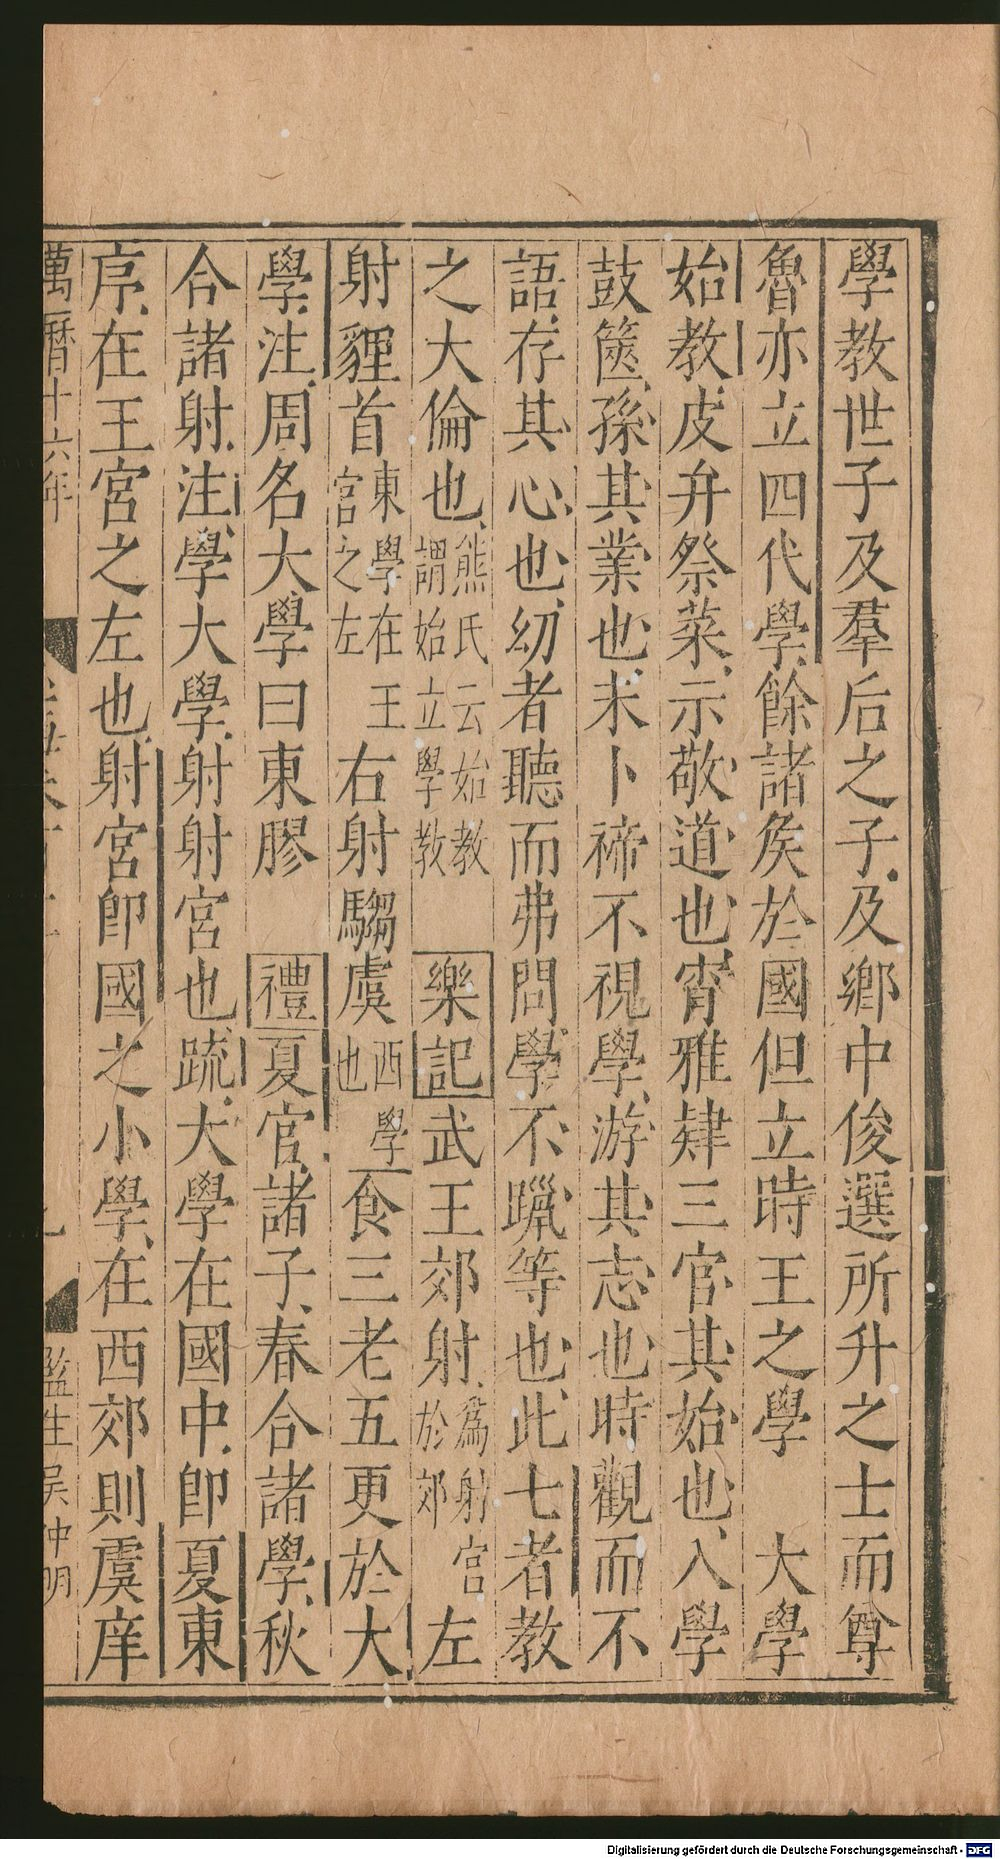 學教世子及羣后之子及鄉中俊選所升之士而尊
魯亦立四代學餘諸矦於國但立時王之學　大學
始教皮弁祭菜示敬道也宵雅肄三官其始也入學
鼓篋孫其業也未卜禘不視學游其志也時觀而不
語存其心也幼者聽而弗問學不躐等也此七者教
之大倫也熊氏云始教謂始立學教　樂記武王郊射為射宮於郊左
射貍首東學在王宮之左右射騶虞西學也食三老五更於大
學注周名大學曰東膠　禮夏官諸子春合諸學秋
合諸射注學大學射射宮也疏大學在國中即夏東
序在王宮之左也射宮即國之小學在西郊則虞庠
萬曆十六年
監生吳仲明
Digitalisierung gefördert durch die Deutsche Forschungsgemeinschaft - DFG